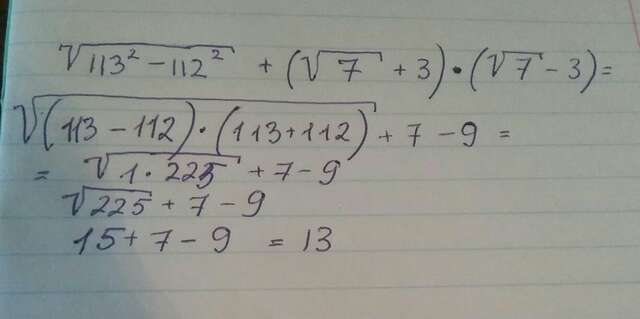 √113² - 112² + (√7 + 3) • (√7 - 3) =
√(113 - 112) • (113 + 112) + 7 - 9 =
= √1 • 225 + 7 - 9
√225 + 7 - 9
15 + 7 - 9 = 13